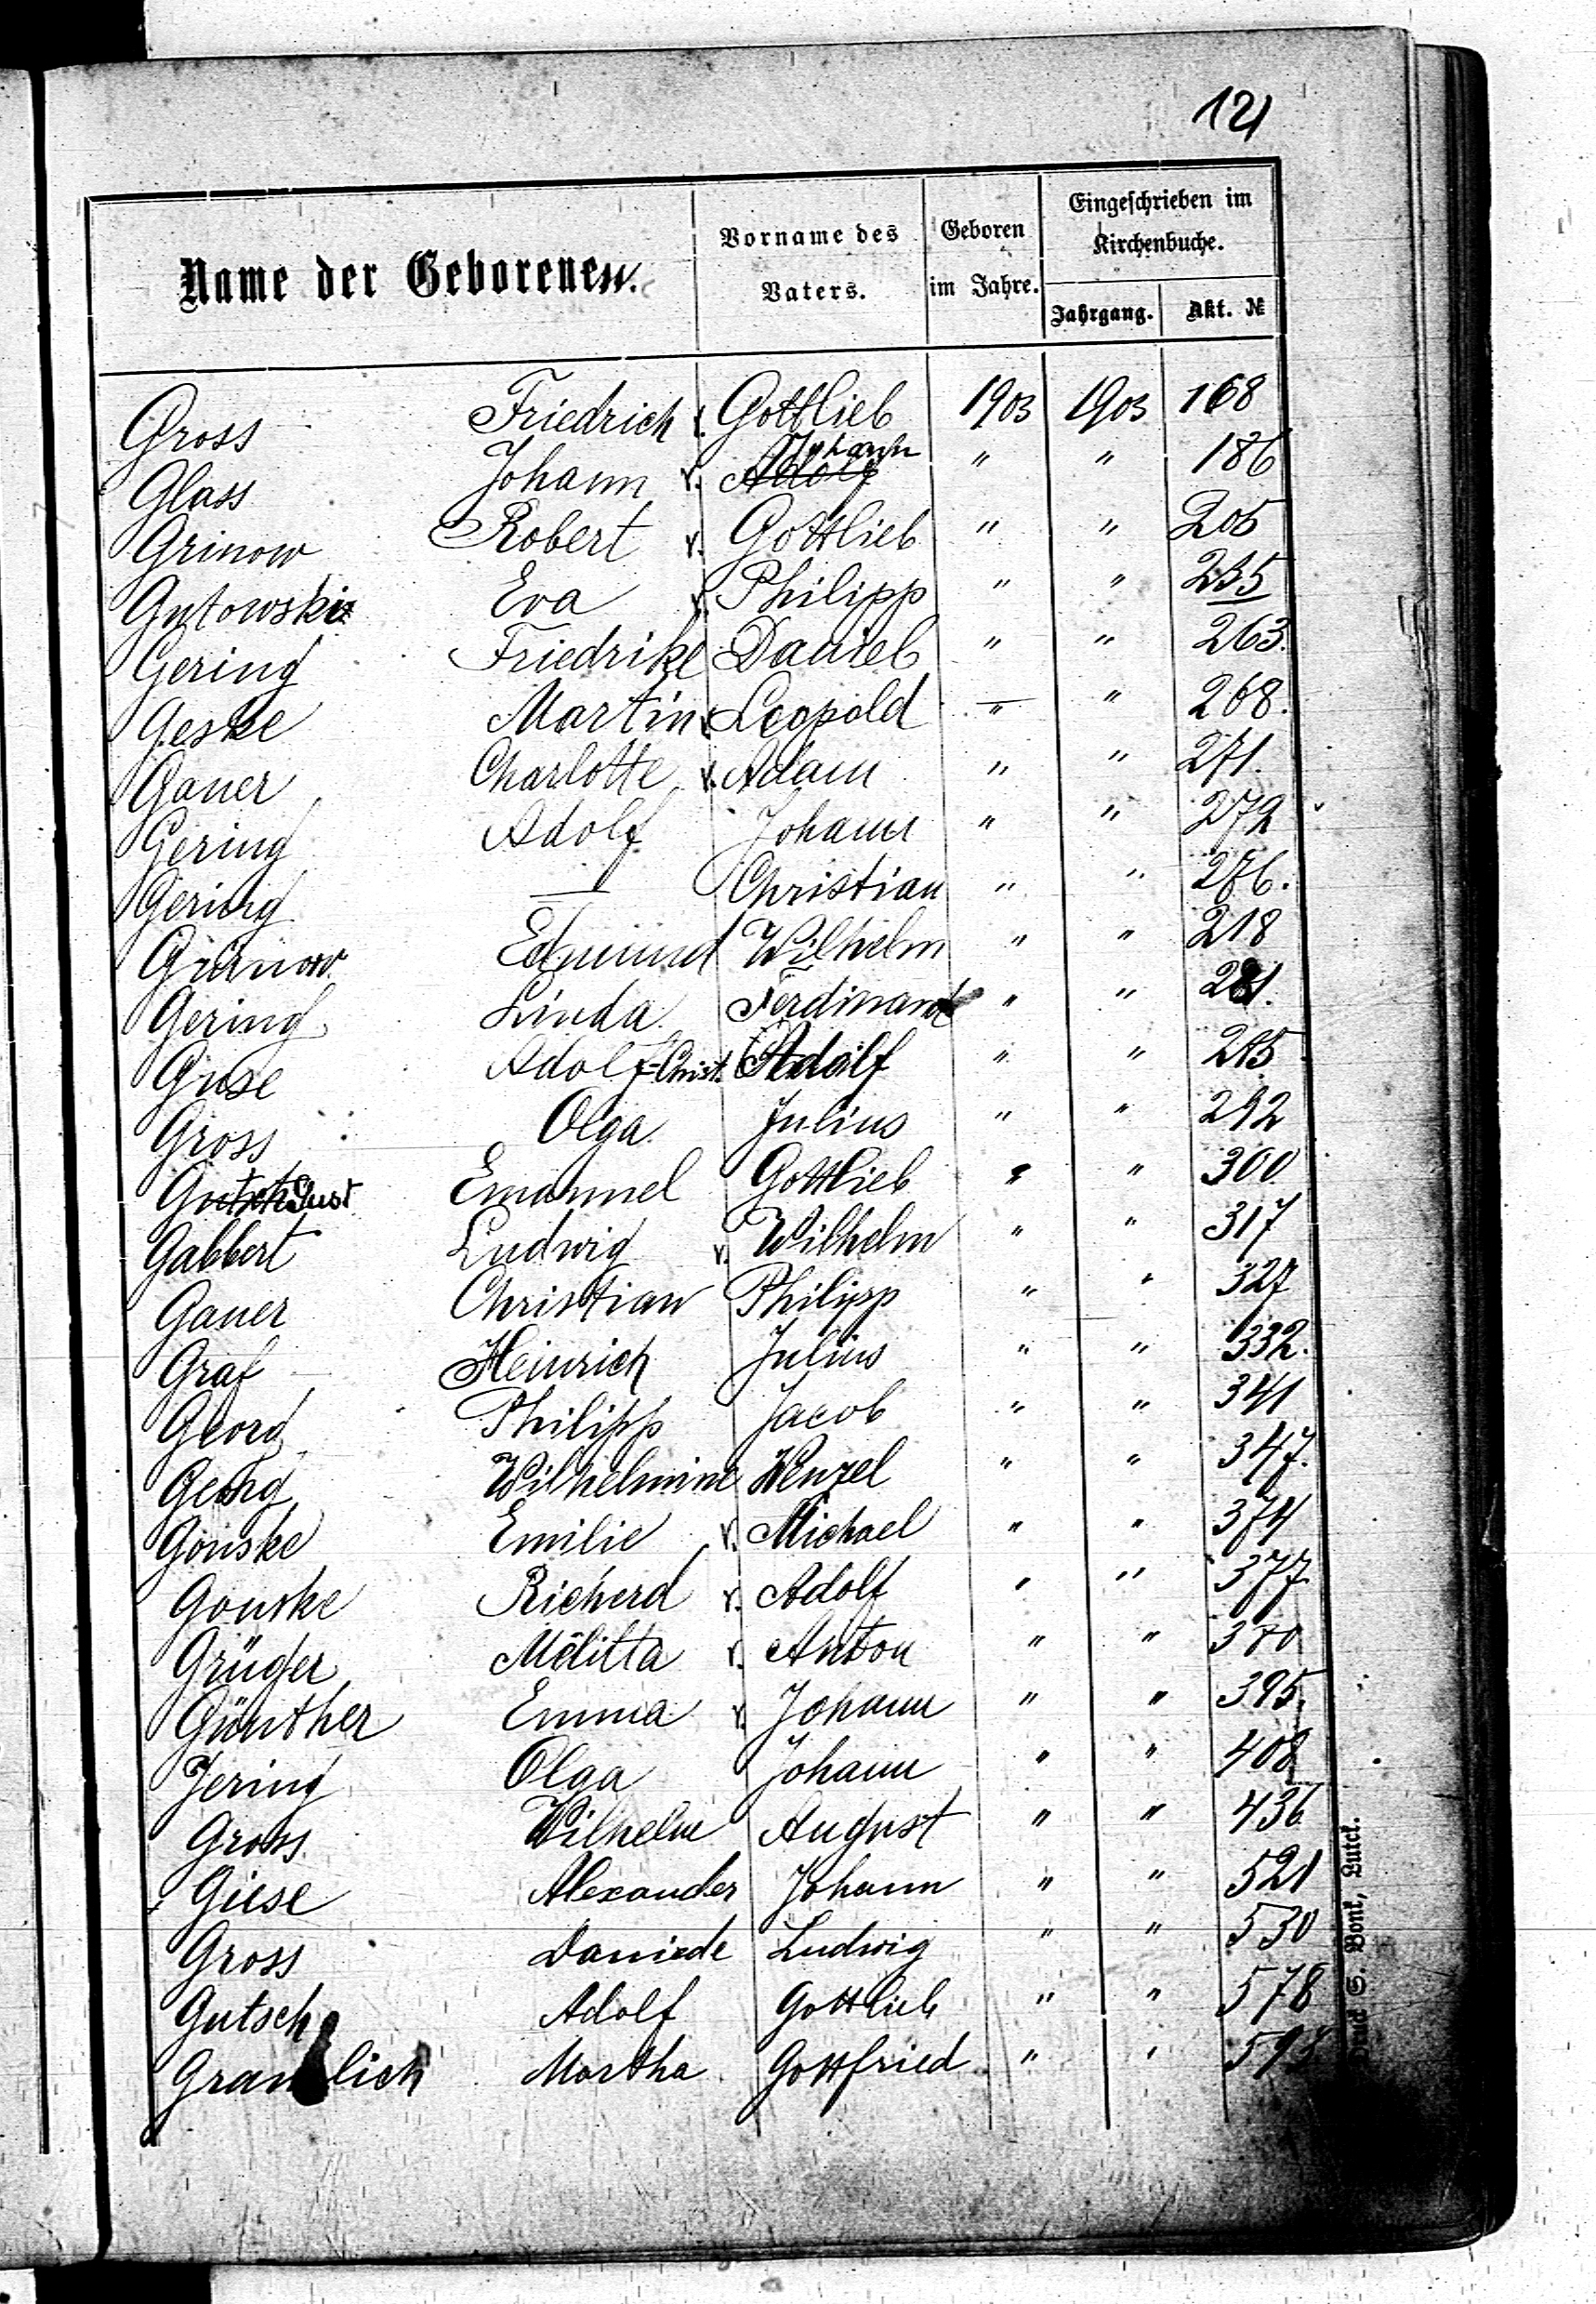 121
Name der Geborenen. Vorname des Vaters. Geboren im Jahre. Eingeschrieben im Kirchenbuche.
Jahrgang. Akt. №
Gross Friedrich v. Gottlieb 1903 1903 168
Glass Johann v. Adolf Johann " " 186
Grinow Robert v. Gottlieb " " 205
Gutowski Eva v. Philipp " " 235
Gering Friedrike Daniel " " 263.
Geske Martin v. Leopold " " 268.
Gauer Charlotte v. Adam " " 271.
Gering Adolf Johann " " 272
Gering — Christian " " 276.
Grünow Edmund Wilhelm " " 218
Gering Linda Ferdinand " " 281.
Giese Adolf=Christ. Adolf " " 285
Gross Olga Julius " " 292
Emanuel Gottlieb " " 300
Gabbert Ludwig v. Wilhelm " " 317
Gauer Christian Philipp " " 327
Graf Heinrich Julius " " 332.
Georg Philipp Jacob " " 341
Georg Wilhelmine Wenzel " " 347.
Gonske Emilie v. Michael " " 374
Gonske Richerd v. Adolf " " 377
Grüger Melitta v. Anton " " 380
Günther Emma v. Johann " " 395.
Jering Olga Johann " " 408
Gross Wilhelm August " " 436
Giese Alexander Johann " " 521
Gross Ludwig " " 530
Gutsch Adolf Gottlieb " " 578
Martha Gottfried " "
Druck S. Bonk, Luck.